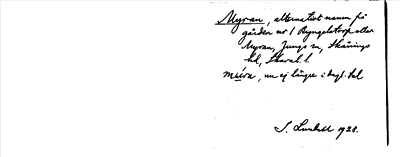 Myran, alternativt namn på
gården nr 1 Ryngelstorp eller
Myran, Jungs sn, Skånings
hd, Skarab. l.
, nu ej längre i dagl. tal
S. Lundell 1928.